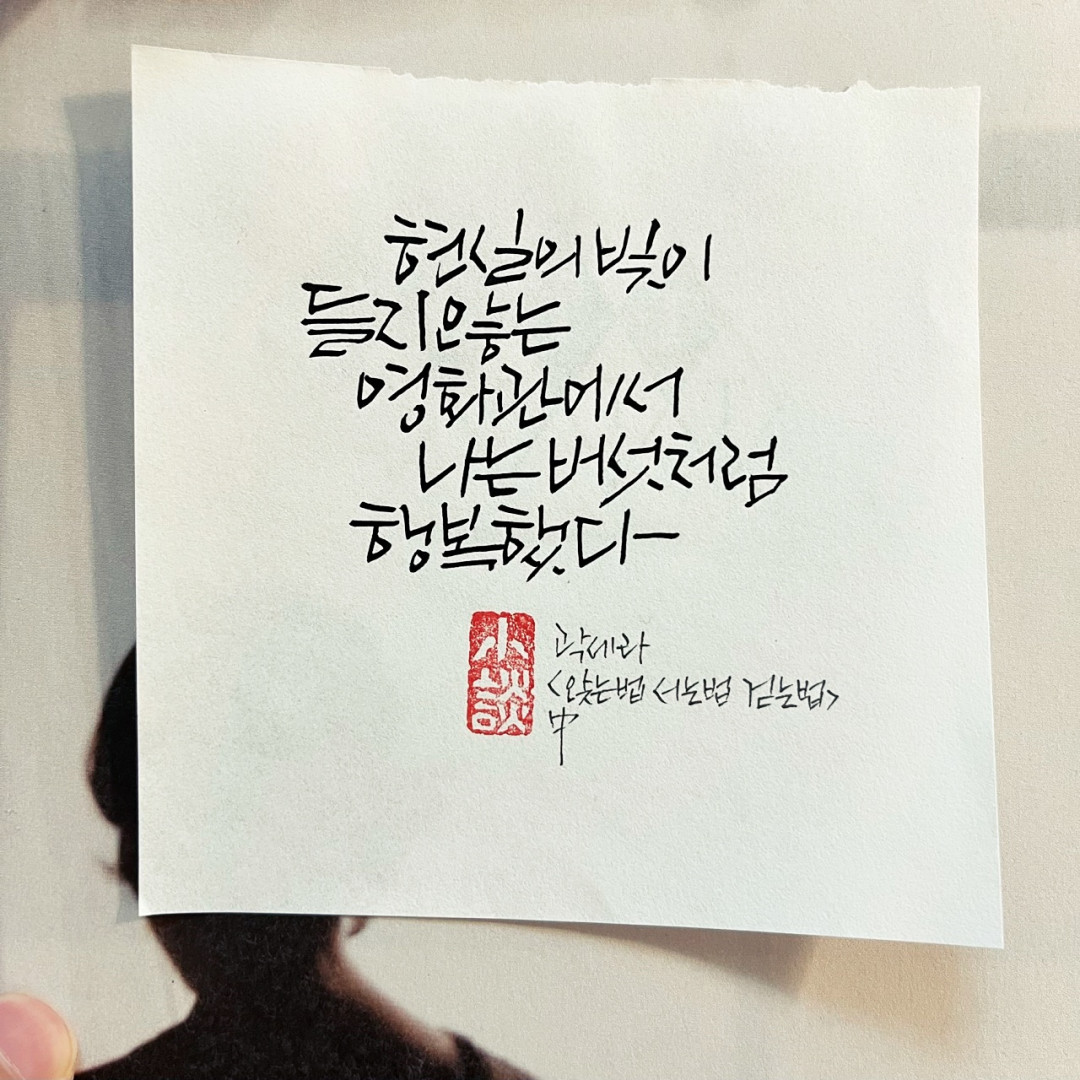 현실의 빛이
들지 않는
영화관에서
나는 버섯처럼
행복했다-
小談
곽세라
<앉는법 서는법 걷는법>
中